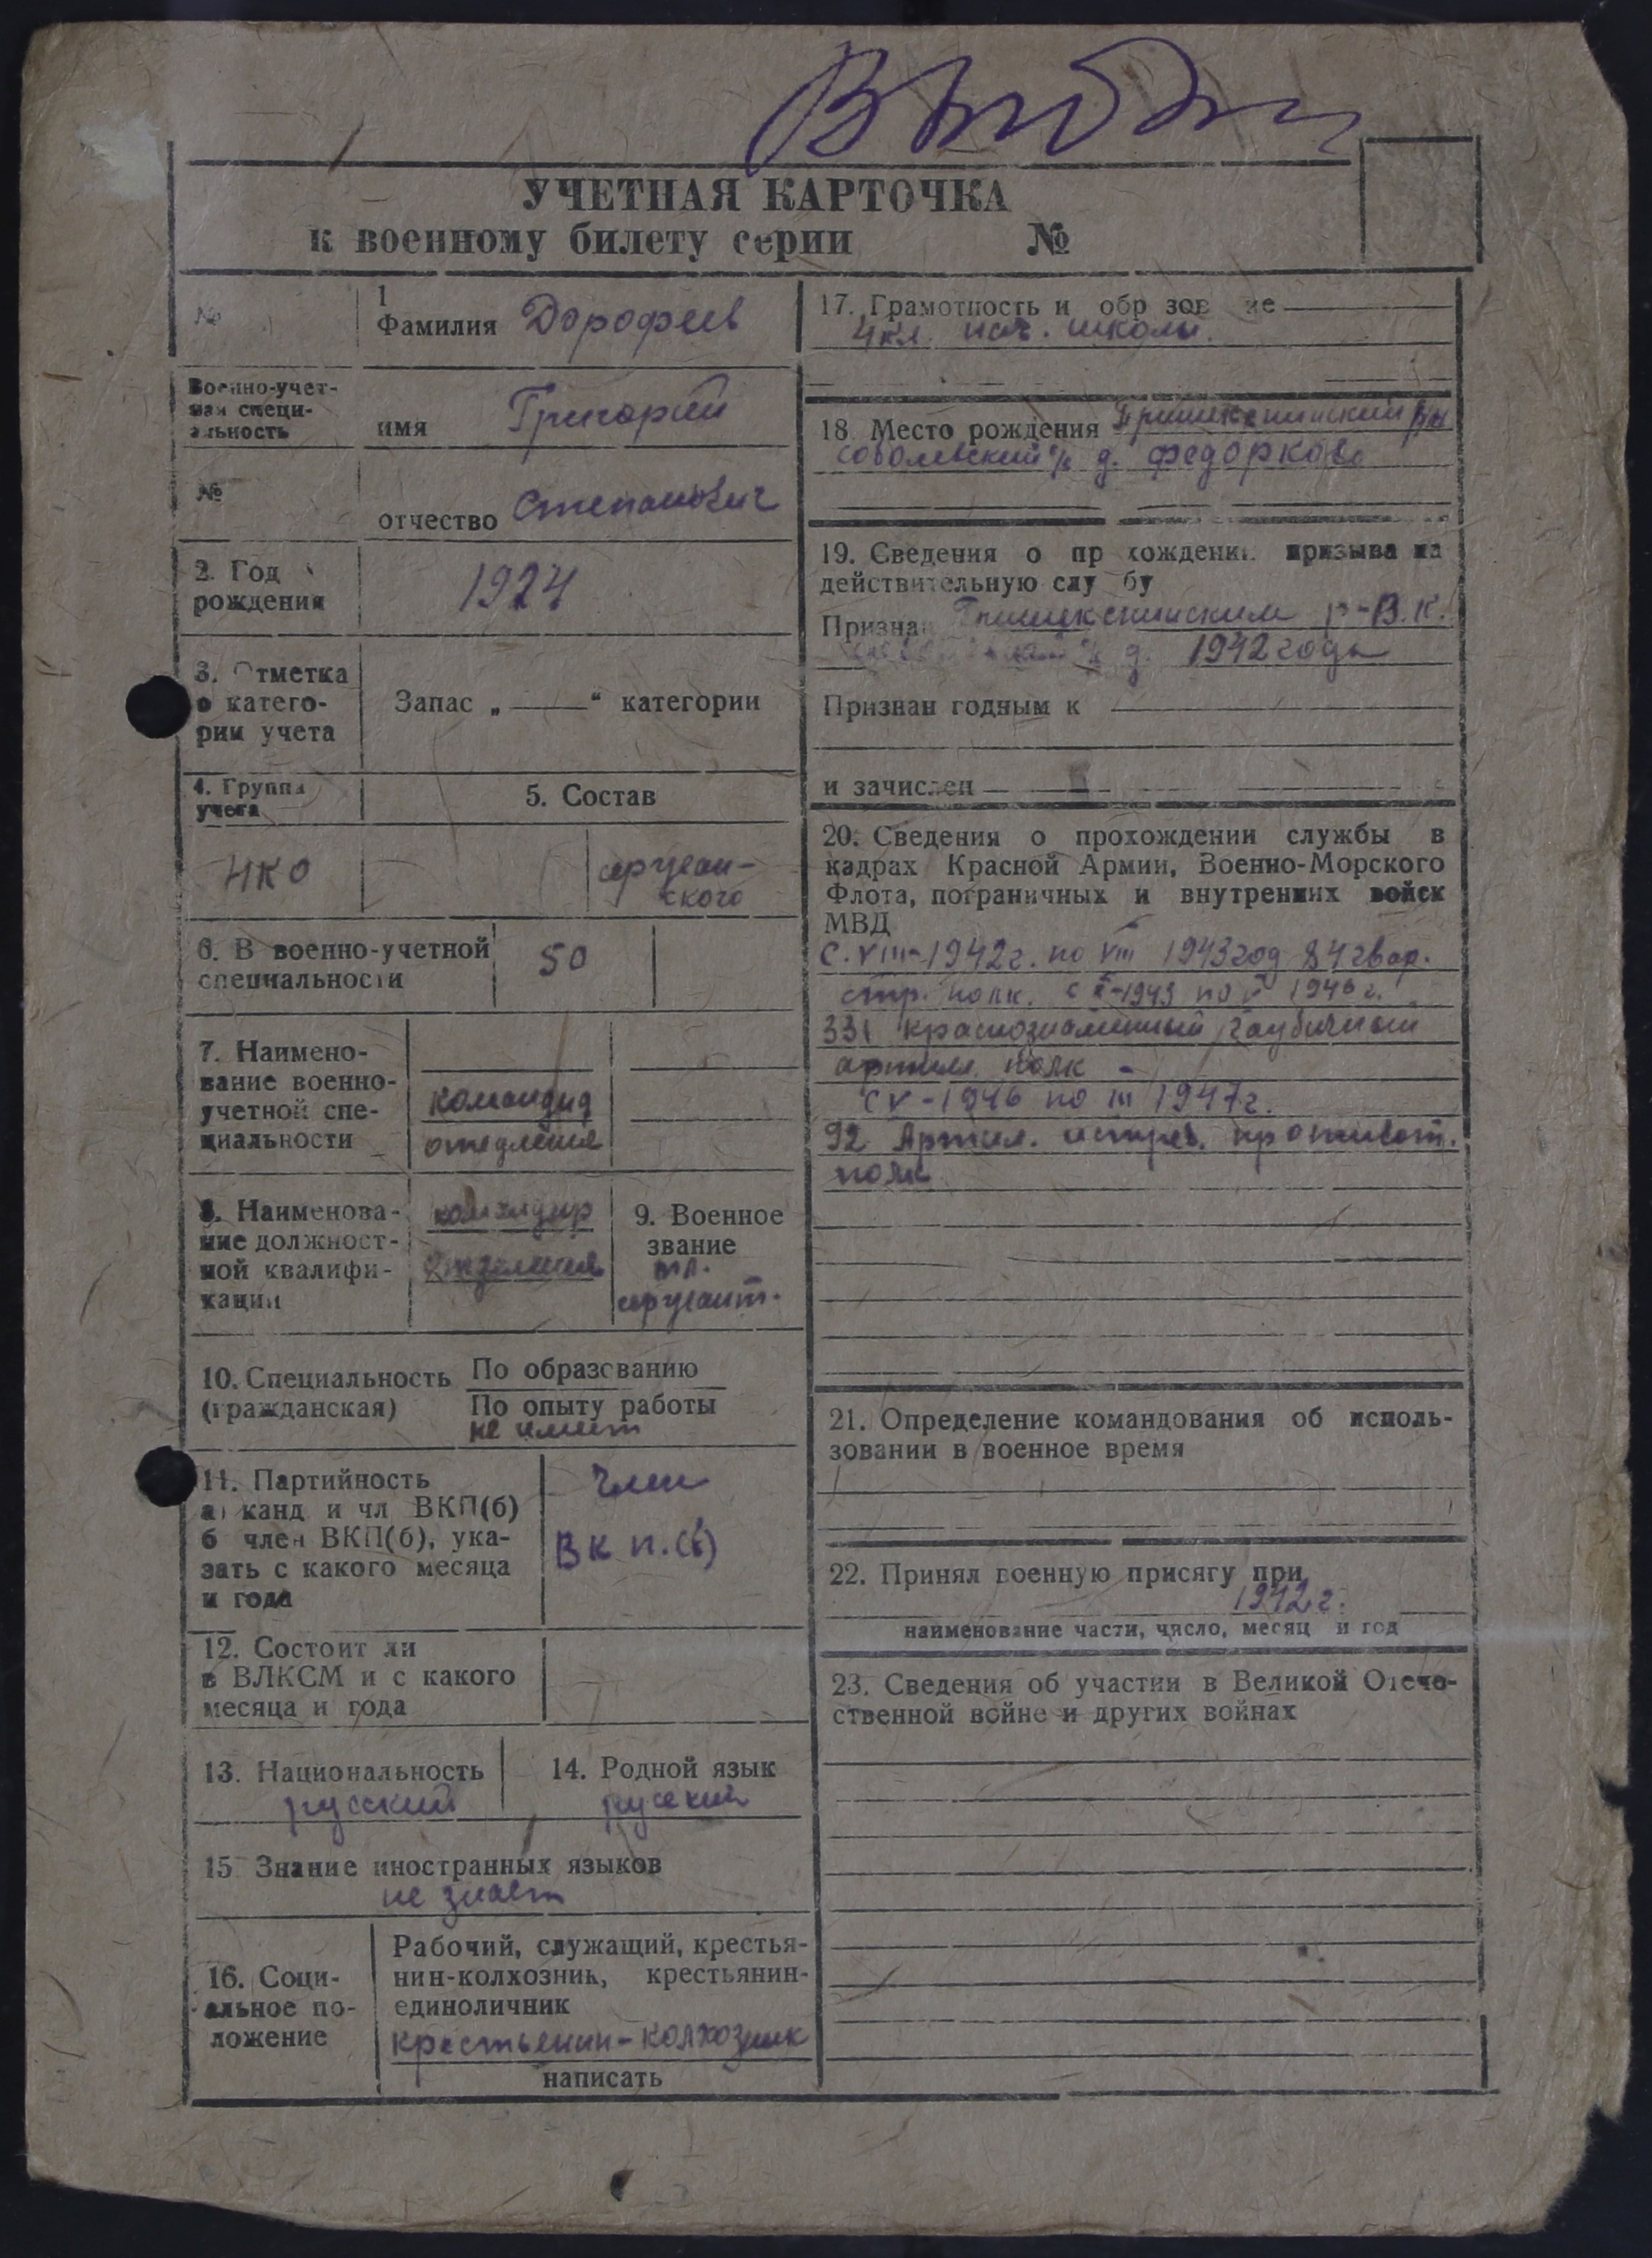 Выбыл
УЧЕТНАЯ КАРТОЧКА
к военному билету серии №
№
1
Фамилия Дорофеев
Военно-учет-
ная специ-
альность
имя Григорий
№
отчество Степанович
2. Год
рождения
1924
3. Отметка
о катего-
рии учета
Запас „ — “ категории
4. Группа
учета
5. Состав
НКО
сержан-
ского
6. В военно-учетной
специальности
50
7. Наимено-
вание военно-
учетной спе-
циальности
командир
отделения
8. Наименова-
ние должност-
ной квалифи-
кации
командир
отделения
9. Военное
звание
мл.
сержант.
10. Специальность
(гражданская)
По образованию
По опыту работы
не имеет
11. Партийность
а) канд и чл ВКП(б)
б член ВКП(б), ука-
зать с какого месяца
и года
член
В К П.(б)
12. Состоит ли
в ВЛКСМ и с какого
месяца и года
13. Национальность
русский
14. Родной язык
русский
15. Знание иностранных языков
не знает
16. Соци-
альное по-
ложение
Рабочий, служащий, крестья-
нин-колхозник, крестьянин-
единоличник
крестьянин-колхозник
написать
17. Грамотность и обр зов ие
4 кл. нач. школы.
18. Место рождения
д. Федорково
19. Сведения о пр хождении призыва на
действительную слу бу
Призна р-В.К.
1942 года
Признан годным к
и зачислен
20. Сведения о прохождении службы в
кадрах Красной Армии, Военно-Морского
Флота, пограничных и внутренних войск
МВД
С. VIII-1942 г. по VIII 1943 год 84 гвар.
стр. полк. с X-1943 по V 1946 г.
331 краснознаменный гаубичный
артил. полк -
с V-1946 по III 1947 г.
92 Артил. истреб. противот.
полк
21. Определение командования об исполь-
зовании в военное время
22. Принял военную присягу при
1942 г.
наименование части, число, месяц и год
23. Сведения об участии в Великой Отече-
ственной войне и других войнах